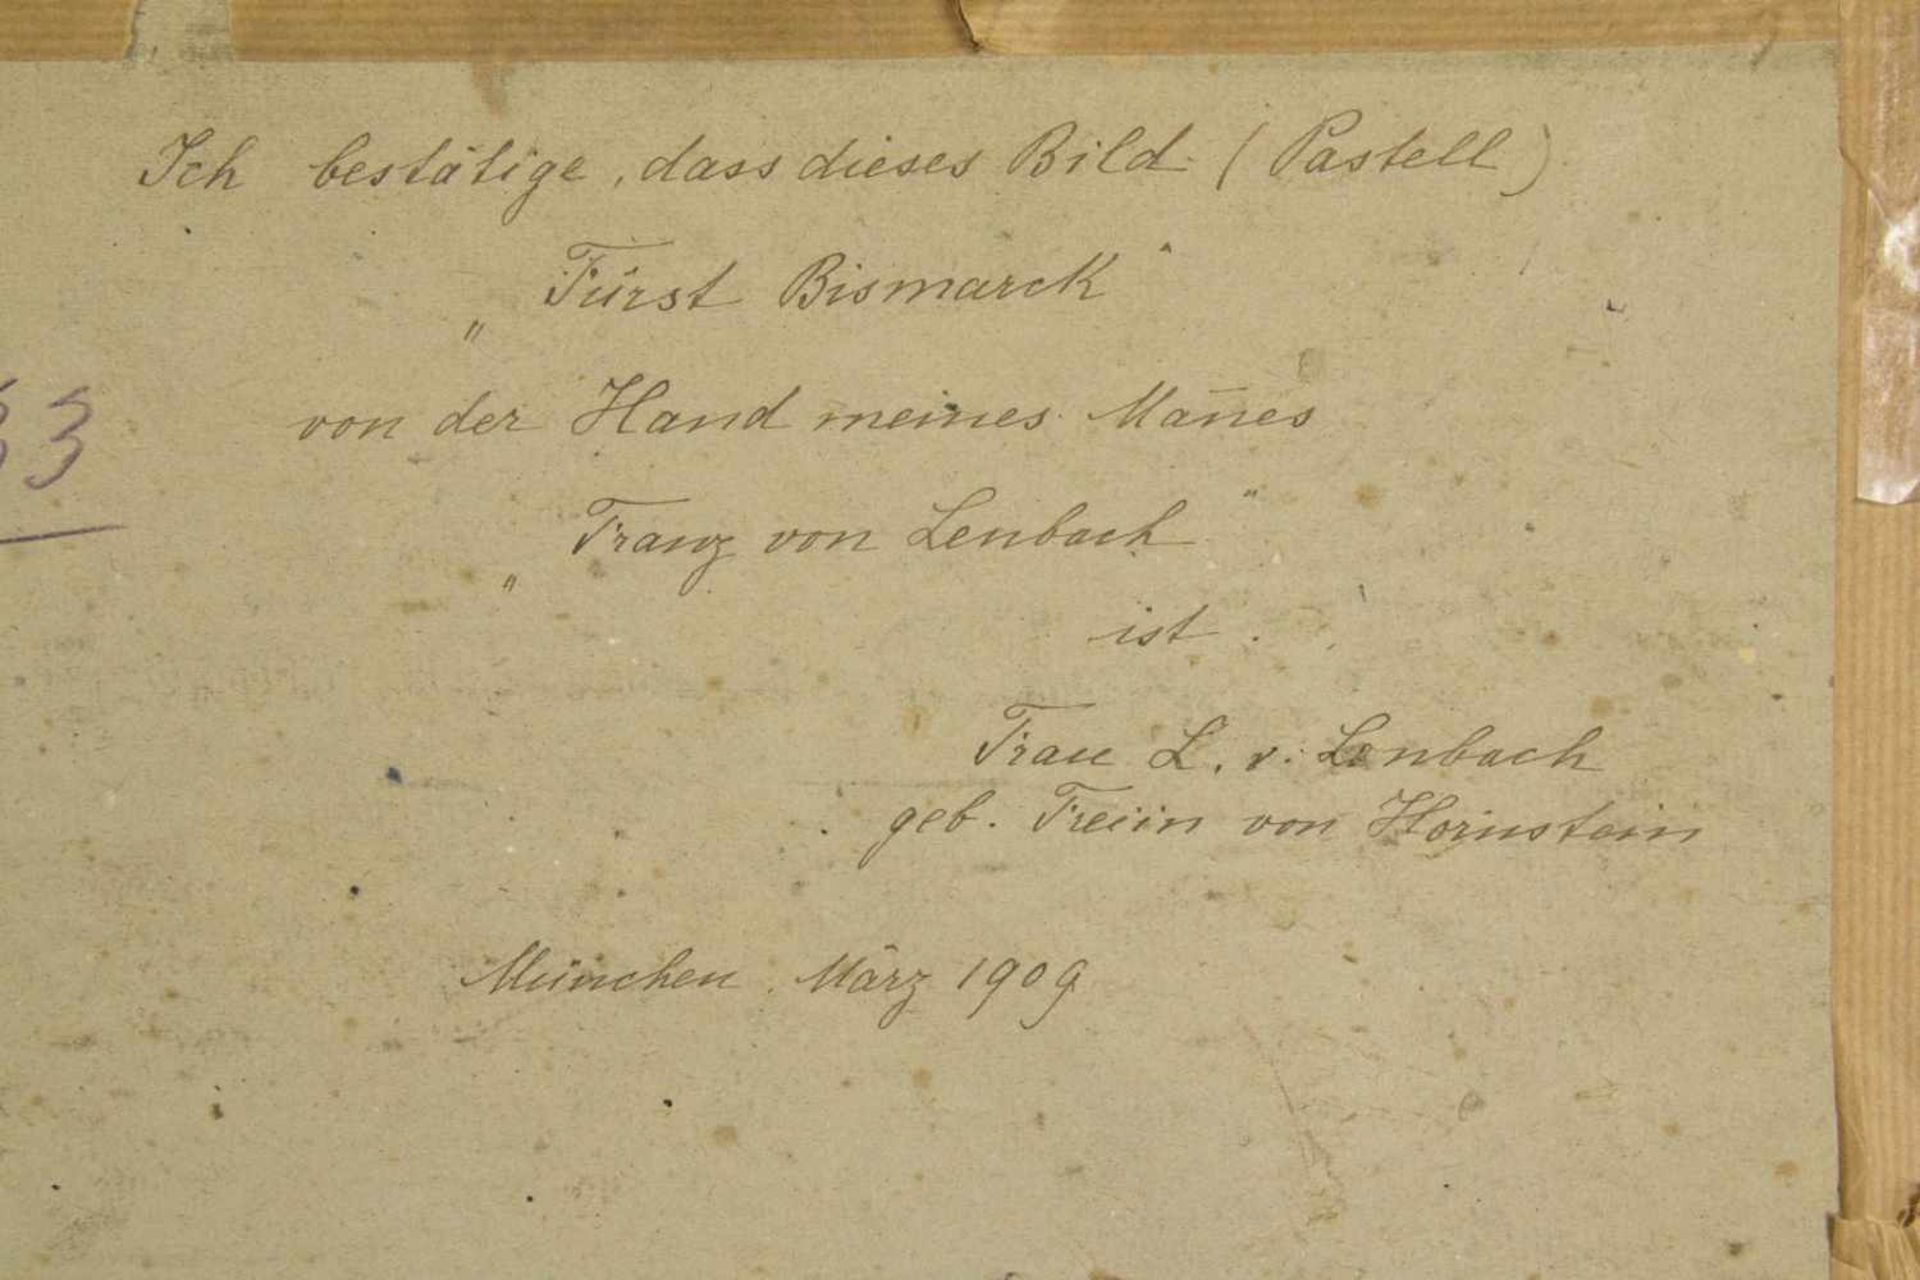 Ich bestätige, dass dieses Bild (Pastell)
„Fürst Bismarck“
von der Hand meines Mañes
„Franz von Lenbach“
ist.
Frau L. v. Lenbach
geb. Freiin von Hornstein
München. März 1909
33